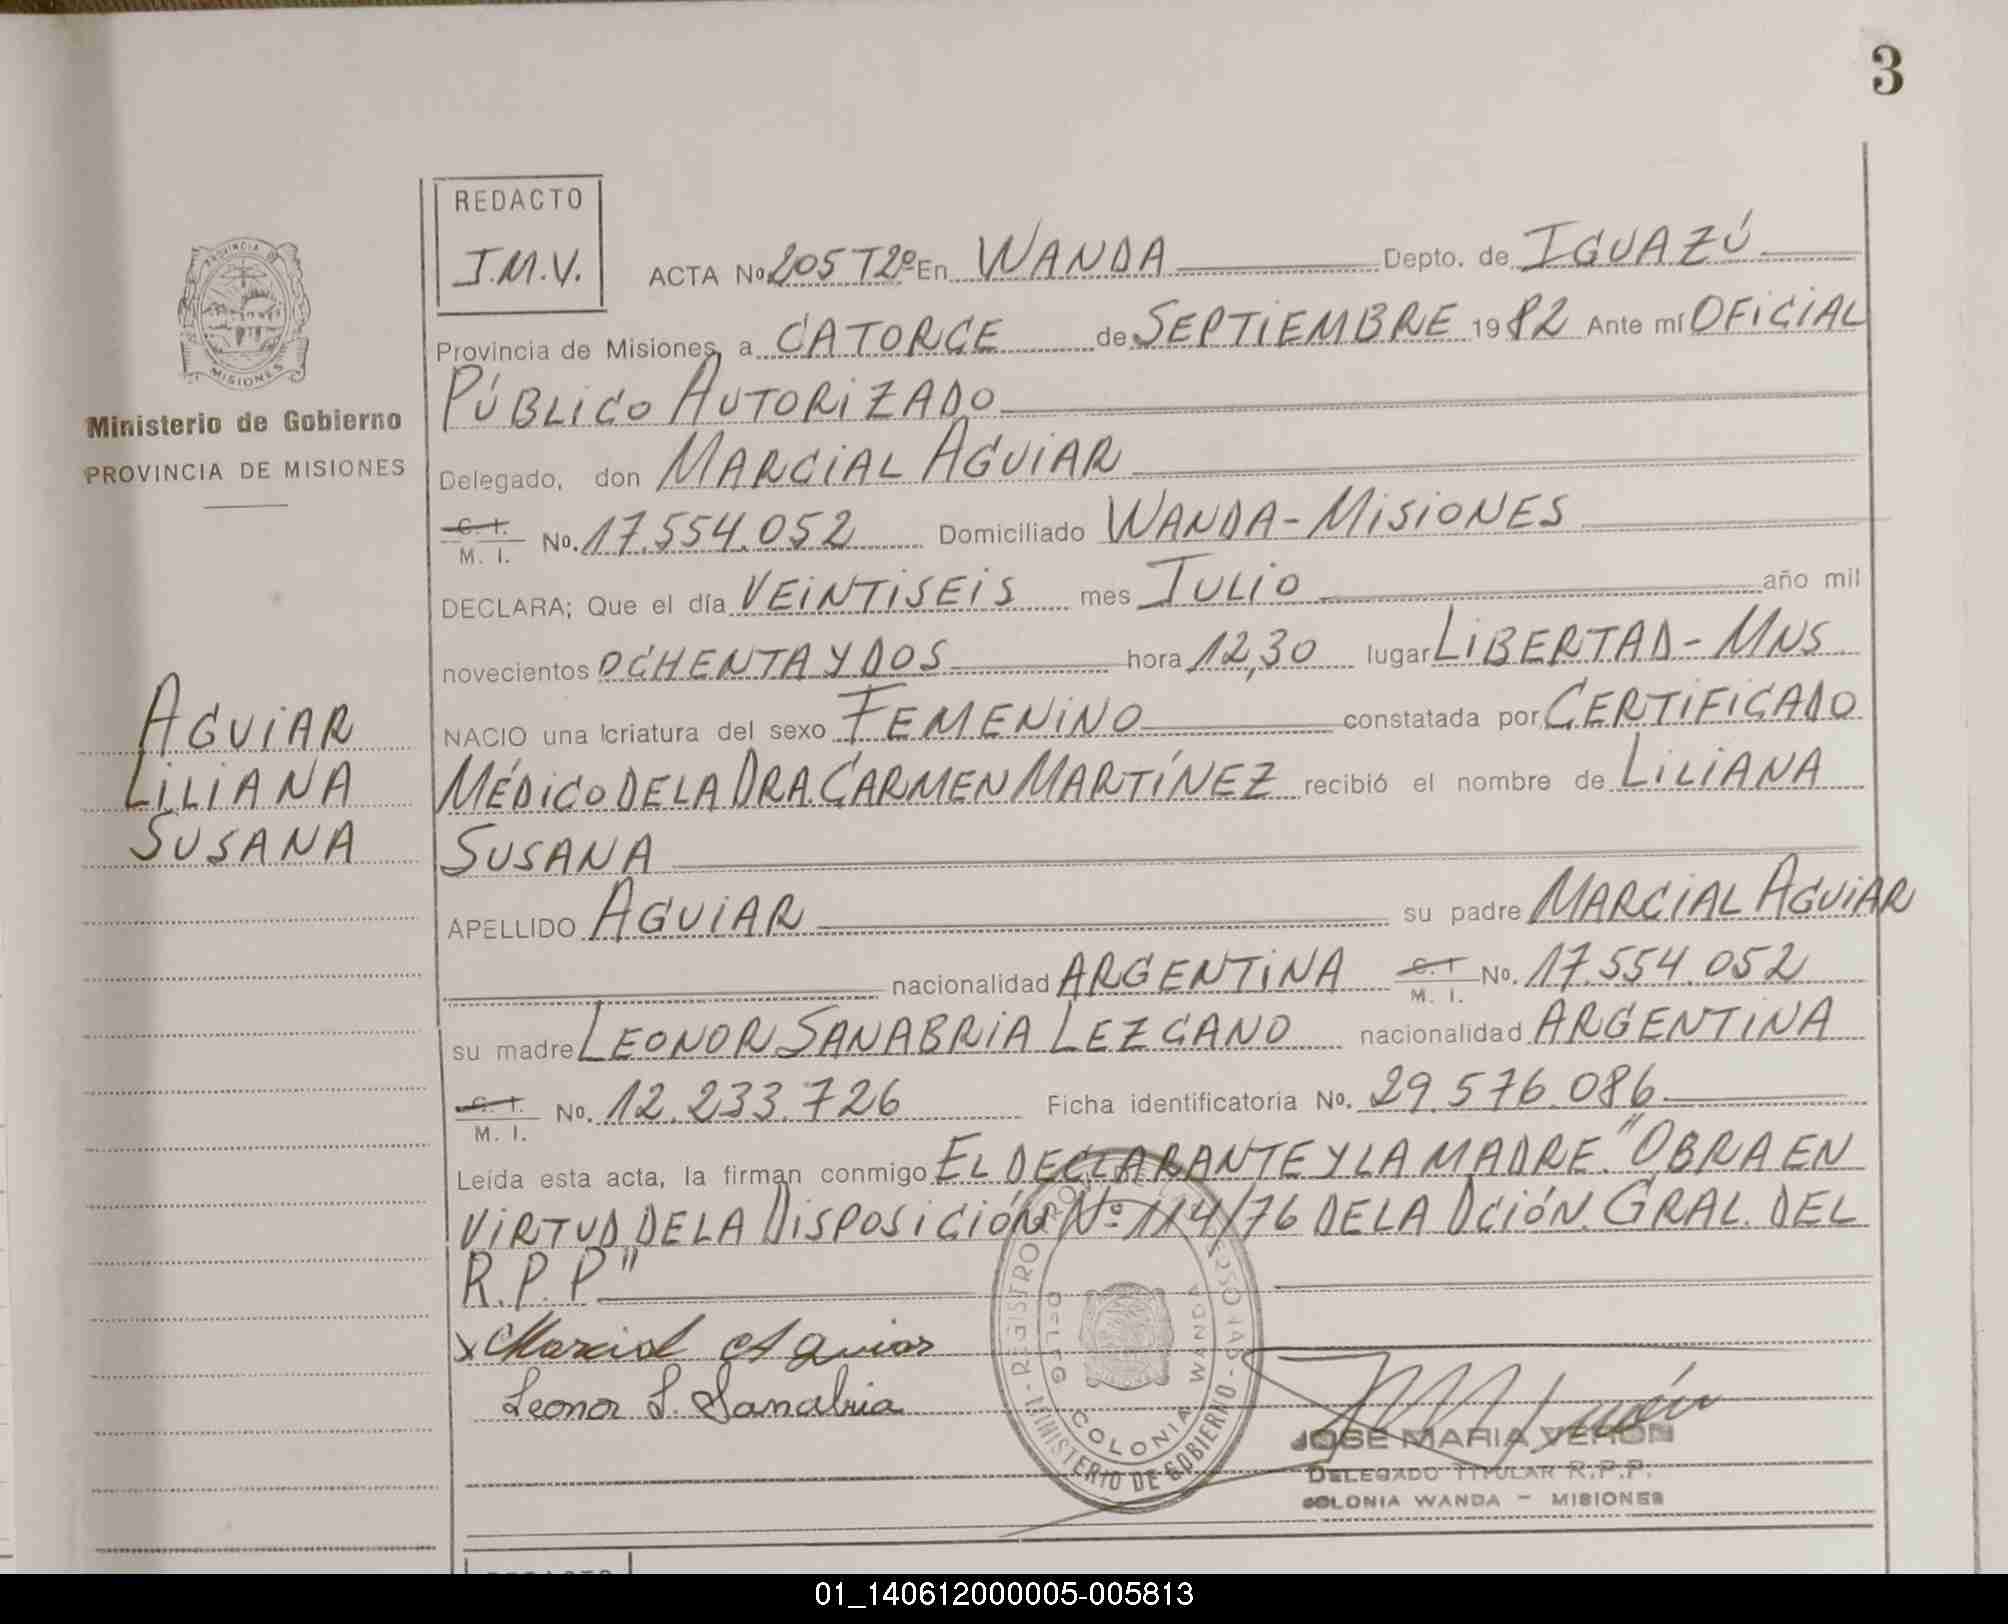 3
REDACTO
J.M.V.
ACTA No. 205 T2º En WANDA Depto. de IGUAZÚ
Provincia de Misiones, a CATORCE de SEPTIEMBRE 1982 Ante mí OFICIAL
PÚBLICO AUTORIZADO
Delegado, don MARCIAL AGUIAR
C. I.
M. I. No. 17.554.052 Domiciliado WANDA - MISIONES
DECLARA; Que el día VEINTISEIS mes JULIO año mil
novecientos OCHENTA Y DOS hora 12,30 lugar LIBERTAD - MNS
NACIO una criatura del sexo FEMENINO constatada por CERTIFICADO
MÉDICO DE LA DRA. CARMEN MARTÍNEZ recibió el nombre de LILIANA
SUSANA
APELLIDO AGUIAR su padre MARCIAL AGUIAR
nacionalidad ARGENTINA C. I.
M. I. No. 17.554.052
su madre LEONOR SANABRIA LEZCANO nacionalidad ARGENTINA
C. I.
M. I. No. 12.233.726 Ficha identificatoria No. 29.576.086
Leída esta acta, la firman conmigo EL DECLARANTE Y LA MADRE. "OBRA EN
VIRTUD DE LA DISPOSICIÓN Nº 114/76 DE LA DCIÓN. GRAL. DEL
R.P.P"
Marcial Aguiar
Leonor L. Sanabria
COLONIA WANDA
MINISTERIO DE GOBIERNO
JOSE MARIA VERON
DELEGADO TITULAR R.P.P.
COLONIA WANDA - MISIONES
PROVINCIA DE
MISIONES
Ministerio de Gobierno
PROVINCIA DE MISIONES
AGUIAR
LILIANA
SUSANA
01_140612000005-005813